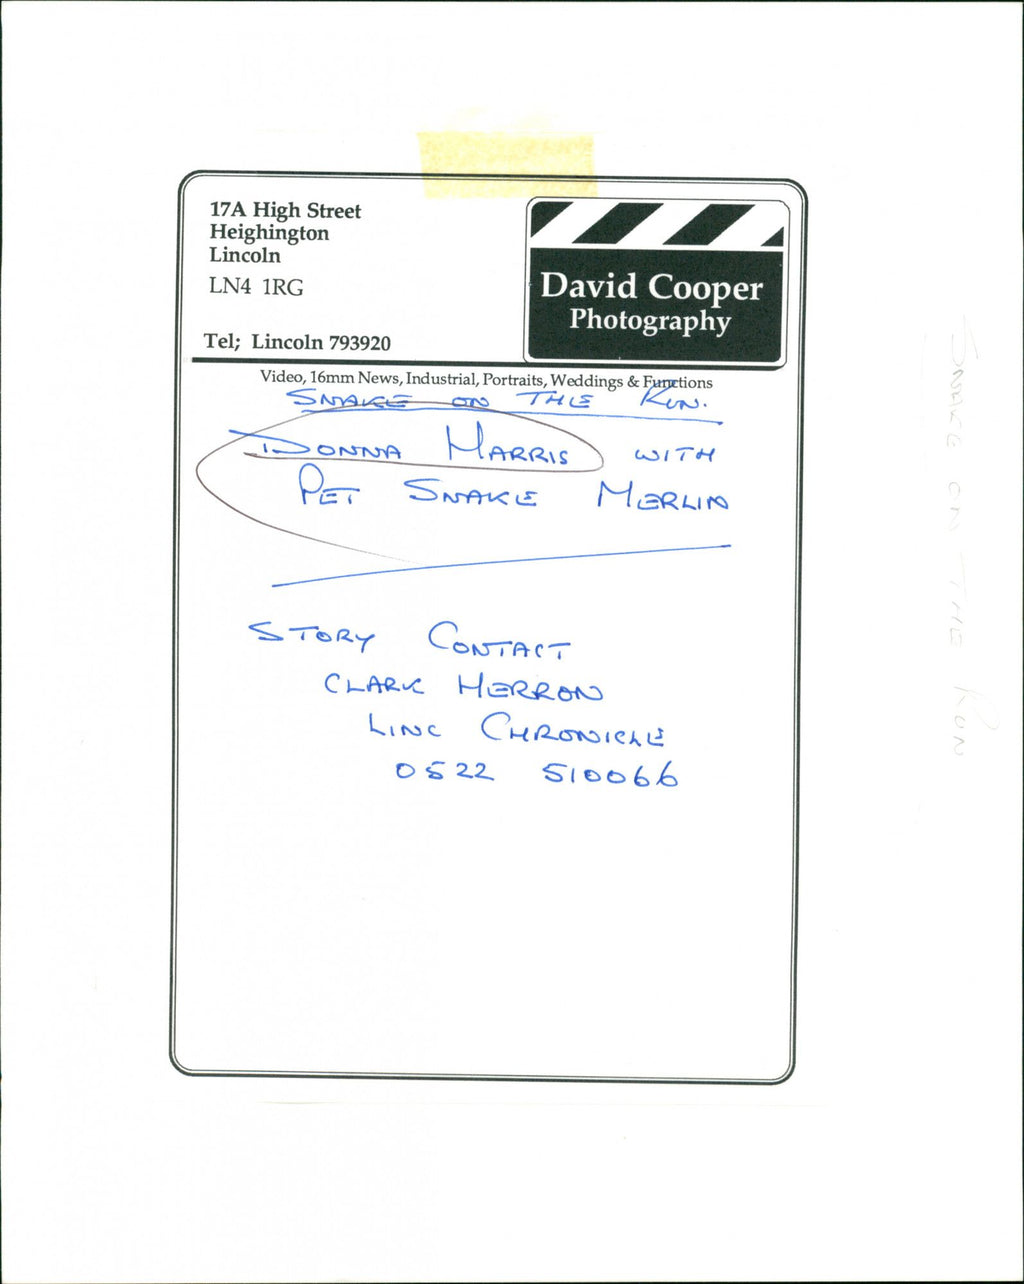 17A High Street
Heighington
Lincoln
LN4 1RG
Tel; Lincoln 793920
David Cooper
Photography
Video, 16mm News, Industrial, Portraits, Weddings & Functions
SNAKE ON THE RUN.
DONNA HARRIS WITH
PET SNAKE MERLIN
STORY CONTACT
CLARK HERRON
LINC CHRONICLE
0522 510066
SNAKE ON THE RUN